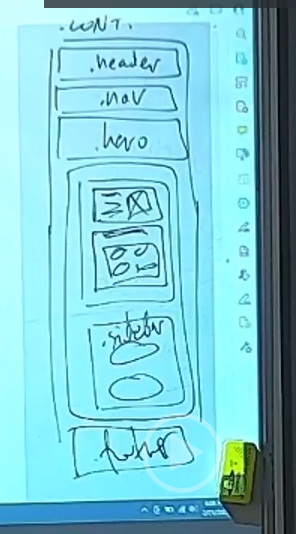 .CONT.
.header
.nav
.hero
.sidebar
.footer